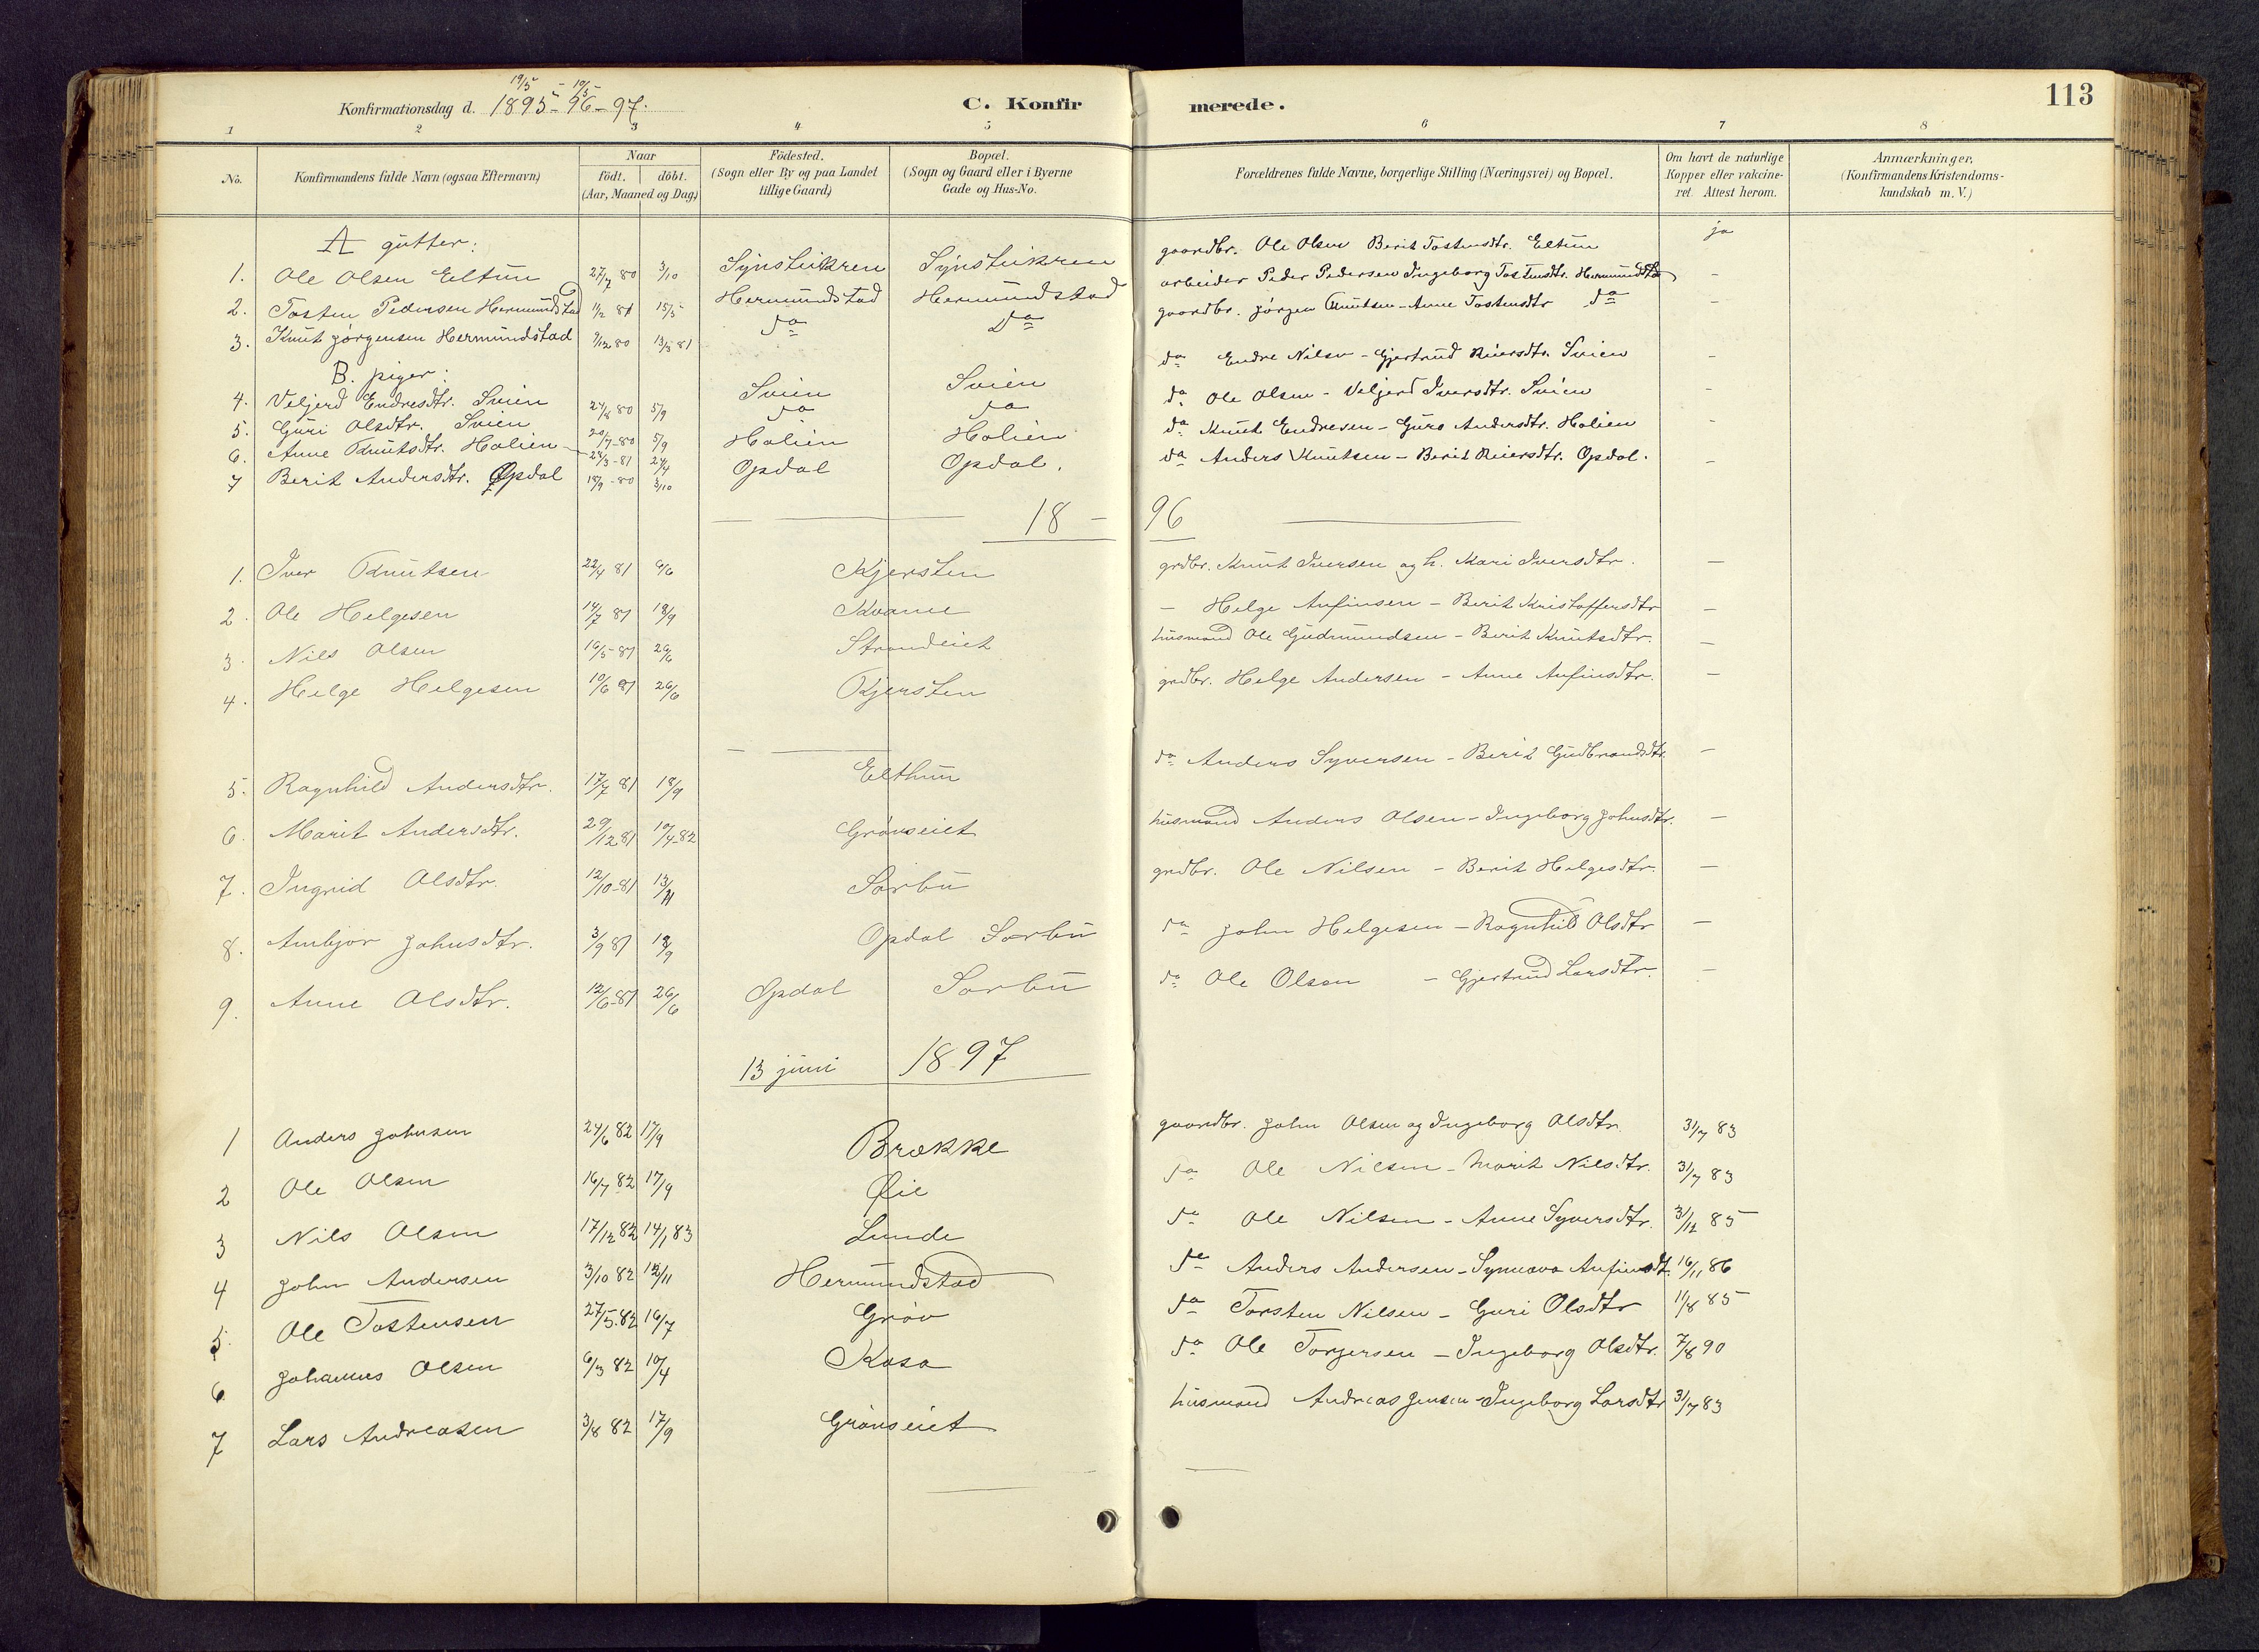 113
19/5 - 10/5 -
Konfirmationsdag d. 1895 - 96 - 97.
C. Konfirmerede.
1 2 3 4 5 6 7 8
No. Konfirmandens fulde Navn (ogsaa Efternavn) Naar födt. döbt. (Aar, Maaned og Dag.) Födested. (Sogn eller By og paa Landet tillige Gaard) Bopæl. (Sogn og Gaard eller i Byerne Gade og Hus-No. Forældrenes fulde Navne, borgerlige Stilling (Næringsvei) og Bopæl. Om havt de naturlige Kopper eller vakcineret. Attest herom. Anmærkninger, (Konfirmandens Kristendomskundskab m. V.)
A gutter:
1. Ole Olsen Eltun 27/7 80 3/10 Synstukren Synstukren gaardbr. Ole Olsen Berit Tostensdtr. Eltun ja
2. Tosten Pedersen Hermundstad 11/2 81 15/5 Hermundstad Hermundstad arbeider Peder Pedersen Ingeborg Tostensdtr. Hermundsta -
3. Knut Jørgensen Hermundstad 9/12 80 13/3 81 do do gaardbr. Jørgen Knutsen - Anne Tostensdtr do -
B. piger:
4. Veljerd Endresdtr. Svien 24/8 80 5/9 Svien Svien do Endre Nilsen - Gjertrud Reiersdtr. Svien -
5. Guri Olsdtr. Svien 20/7-80 5/9 do do do Ole Olsen - Veljerd Iversdtr. Svien -
6. Anne Knutsdtr. Holien 24/3-81 24/4 Holien Holien do Knut Endresen - Guro Andersdtr. Holien -
7 Berit Andersdtr. Opdal 18/9-80 3/10 Opdal Opdal. do Anders Knutsen - Berit Reiersdtr. Opdal. -
18 - 96
1. Iver Knutsen 22/4 81 6/6 Kjersten grdbr. Knut Iversen og h. Kari Iversdtr. -
2. Ole Helgesen 14/7 81 18/9 Kvame - Helge Anfinsen - Berit Kristoffersdtr -
3. Nils Olsen 16/5-81 26/6 Strandeiet husmand Ole Gudmundsen - Berit Knutsdtr. -
4. Helge Helgesen 10/6 81 26/6 Kjersten grdbr. Helge Andersen - Anne Anfinsdtr. -
5. Ragnhild Andersdtr. 17/7 81 18/9 Elthun do Anders Syversen - Berit Gudbrandsdtr. -
6. Marit Andersdtr. 29/12 81 10/4-82 Grønseiet husmand Anders Olsen - Ingeborg Johnsdtr. -
7. Ingrid Olsdtr. 12/10-81 13/11 Sørbu grdbr. Ole Nilsen - Berit Helgesdtr. -
8. Ambjør Johnsdtr. 3/9 81 18/9 Opdal Sørbu do John Helgesen - Ragnhild Olsdtr -
9. Anne Olsdtr. 12/6-81 26/6 Opdal Sørbu do Ole Olsen - Gjertrud Larsdtr. -
13 juni 1897
1 Anders Johnsen 24/6 82 17/9 Brække gaardbr. John Olsen og Ingeborg Olsdtr. 31/7 83
2 Ole Olsen 16/7 82 17/9 Øie do Ole Nilsen - Marit Nilsdtr. 31/7 83
3 Nils Olsen 17/12 82 14/1 83 Lunde do Ole Nilsen - Anne Syversdtr. 31/12 85
4 John Andersen 3/10 82 12/11 Hermundstad do Anders Andersen - Synneva Anfinsdt. 16/11 86
5. Ole Tostensen 27/5.82 16/7 Grøv do Torsten Nilsen - Guri Olsdtr 11/8 85
6 Johannes Olsen 6/3 82 10/4 Kasa do Ole Torgersen - Ingeborg Olsdtr. 7/8 90
7 Lars Andreasen 3/8 82 17/9 Grønseiet husmand Andreas Jensen - Ingeborg Larsdtr 31/7 83